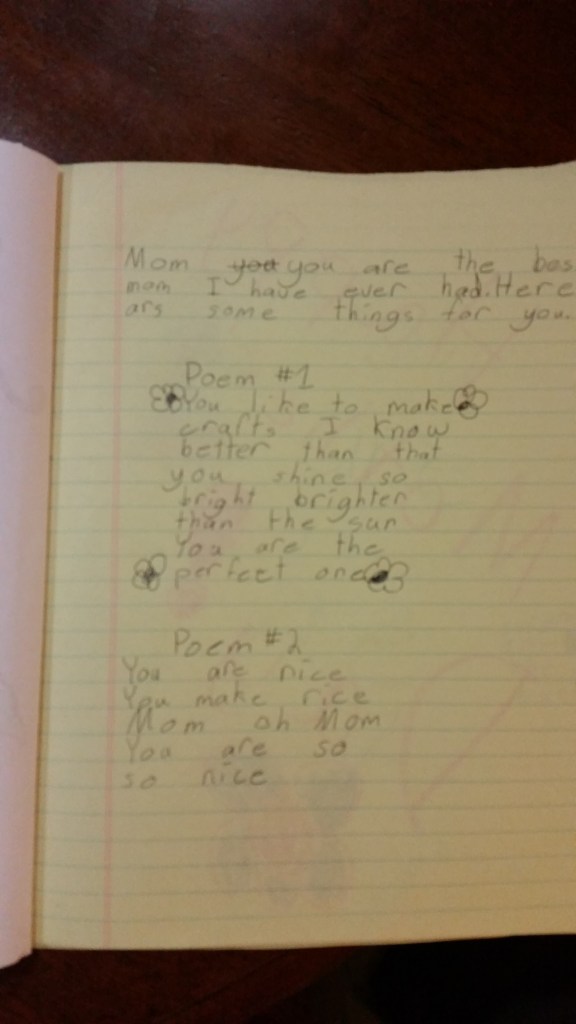 Mom you you are the bes
mom I have ever had. Here
ars some things for you.
Poem #1
You like to make
crafts I know
better than that
you shine so
bright brighter
than the sun
You are the
perfect one
Poem #2
You are nice
You make rice
Mom oh Mom
You are so
so nice